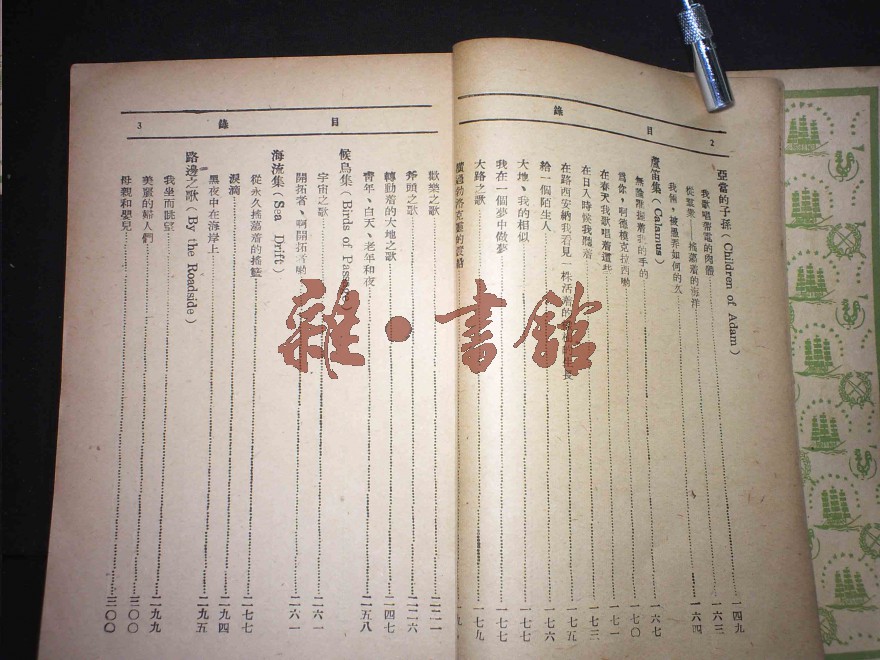 目錄 2
亞當的子孫(Children of Adam)
我歌唱帶電的肉體 一四九
從 搖蕩着的海洋 一六三
我倆,被愚弄如何的久 一六四
蘆笛集(Calamus) 一六七
無論誰握着我的手的 一七〇
爲你,啊德模克拉西喲 一七一
在春天我歌唱着這些
在日入時候我聽着 一七三
在路西安納我看見一株活着的 一七五
給一個陌生人 一七六
大地、我的相似 一七七
我在一個夢中做夢 一七七
大路之歌 一七九
目錄 3
歡樂之歌
斧頭之歌
轉動着的大地之歌 一四七
青年、白天、老年和夜 一五八
候鳥集(Birds of Passage)
宇宙之歌 一六一
開拓者、啊開拓者喲 一六一
海流集(Sea Drift)
從永久搖蕩着的搖籃 一七七
淚滴 一九四
黑夜中在海岸上 一九五
路邊之歌(By the Roadside)
我坐而眺望 一九九
美麗的婦人們 三〇〇
母親和嬰兒 三〇〇
雜·書館